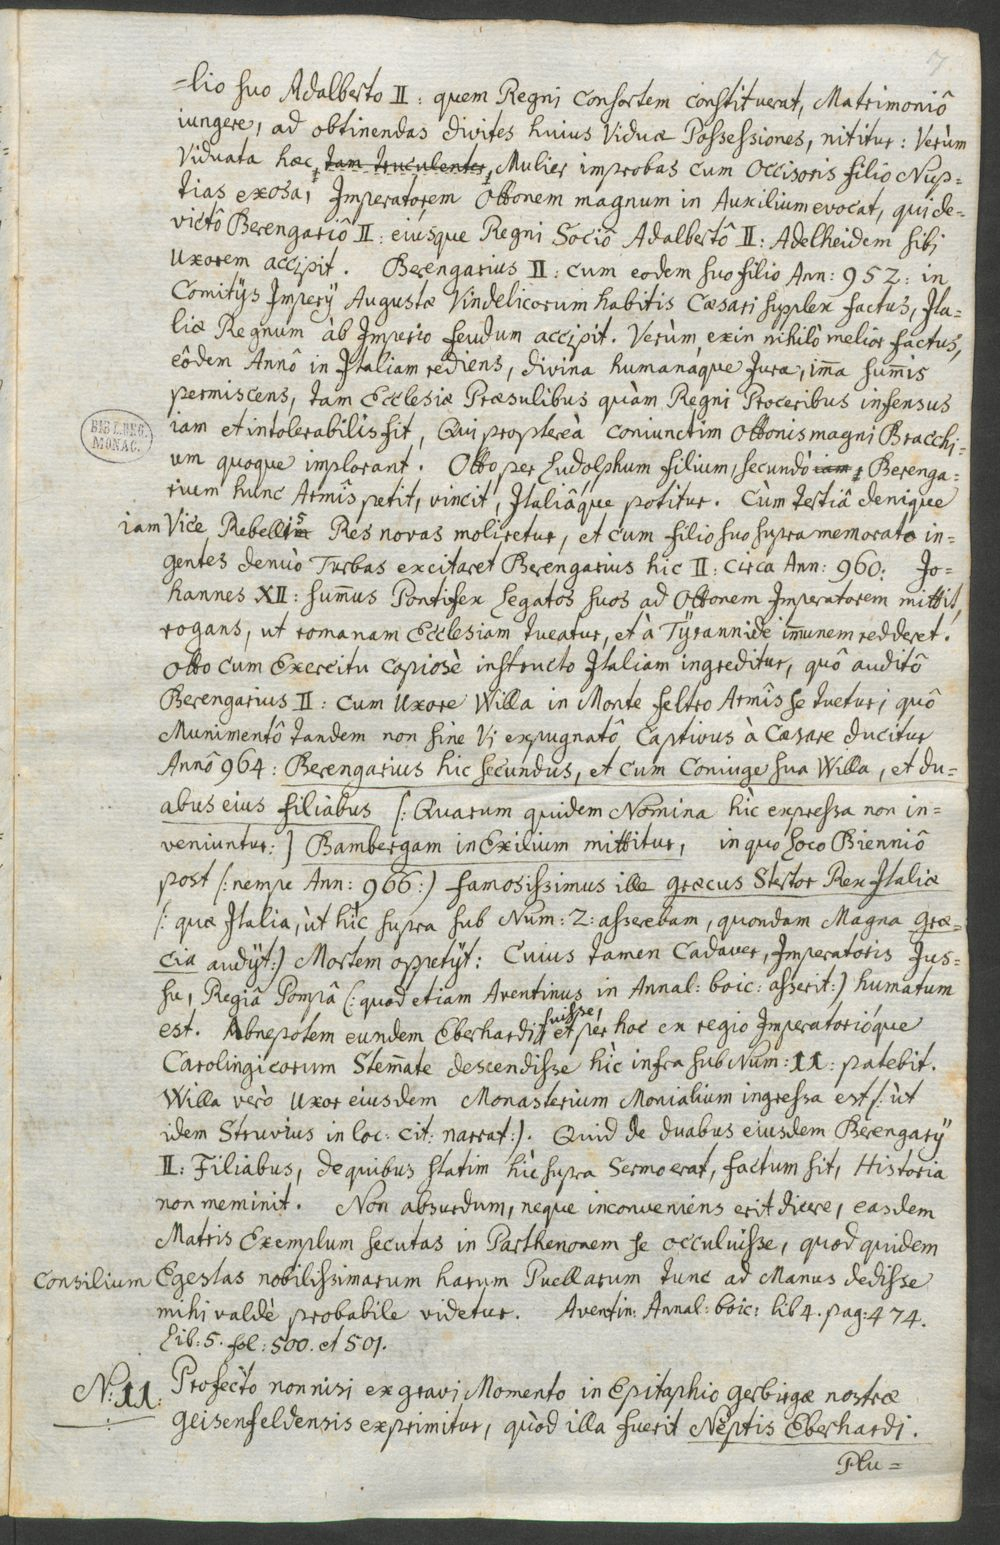 7
=lio suo Adalberto II: quem Regni Consortem constituerat, Matrimoniô
iungere, ad obtinendas divites huius Viduæ Possessiones, nititur: Verùm
Viduata hæc, tam truculenter, Mulier improbas cum Occisoris filio Nup=
tias exosa, Imperatorem Ottonem magnum in Auxilium evocat, qui de=
victô Berengariô II: eiusque Regni Sociô Adalbertô II: Adelheidem sibi
Uxorem accipit. Berengarius II: cum eodem suo filio Ann: 952: in
Comitÿs Imperÿ Augustæ Vindelicorum habitis Cæsari supplex factus, Ita=
liæ Regnum àb Imperio feudum accipit. Verùm, exin nihilò melior factus,
eôdem Annô in Italiam rediens, divina humanáque Jura, im̄a sum̄is
permiscens, tam Ecclesiæ Præsulibus quàm Regni Proceribus infensus
iam et intolerabilis fit, Qui proptereà coniunctim Ottonis magni Bracchi=
um quoque implorant. Otto per Ludolphum filium, secundò iam, Berenga=
rium hunc Armîs petit, vincit, Italiâque potitur. Cùm tertiâ denique
iam Vice, Rebellis Res novas moliretur, et cum filio suo supra memorato in=
gentes denuò Turbas excitaret Berengarius hic II: circa Ann: 960: Jo=
hannes XII: sum̄us Pontifex Legatos suos ad Ottonem Imperatorem mittit,
rogans, ut romanam Ecclesiam tueatur, et à Tÿrannide im̄unem redderet.
Otto cum Exercitu copiosè instructo Italiam ingreditur, quô auditô
Berengarius II: cum Uxore Willa in Monte feltro Armîs se tuetur; quô
Munimentô tandem non sine Vi expugnatô Captivus à Cæsare ducitur
Annô 964: Berengarius hic secundus, et cum Coniuge sua Willa, et du=
abus eius filiabus [: Quarum quidem Nomina hîc expressa non in=
veniuntur:] Bambergam in Exilium mittitur, in quo Loco Bienniô
post (: nempe Ann: 966:) famosissimus ille græcus Stertor Rex Italiæ
(: quæ Italia, ùt hîc supra sub Num: 2: asserebam, quondam Magna Græ=
cia audÿt:) Mortem oppetÿt: Cuius tamen Cadaver, Imperatoris Jus=
su, Regiâ Pompâ (: quod etiam Aventinus in Annal: boic: asserit:) humatum
est. Abnepotem eundem Eberhardi fuisse, et per hoc ex regio Imperatorióque
Carolingicorum Stem̄ate descendisse hîc infra sub Num: 11: patebit.
Willa verò Uxor eiusdem Monasterium Monialium ingressa est (: ùt
idem Struvius in loc: cit: narrat:). Quid de duabus eiusdem Berengarÿ
II: Filiabus, de quibus statim hîc supra Sermo erat, factum sit, Historia
non meminit. Non absurdum, neque inconveniens erit dicere, easdem
Matris Exemplum secutas in Parthenonem se occuluisse, quod quidem
Consilium Egestas nobilissimarum harum Puellarum tunc ad Manus dedisse
mihi valdè probabile videtur. Aventin: Annal: boic: lib 4. pag: 474.
Lib: 5. fol: 500. et 501.
N: 11: Profectò nonnisi ex gravi Momento in Epitaphio Gerbirgæ nostræ
Geisenfeldensis exprimitur, quòd illa fuerit Neptis Eberhardi.
Plu=
BIBL. REG.
MONAC.